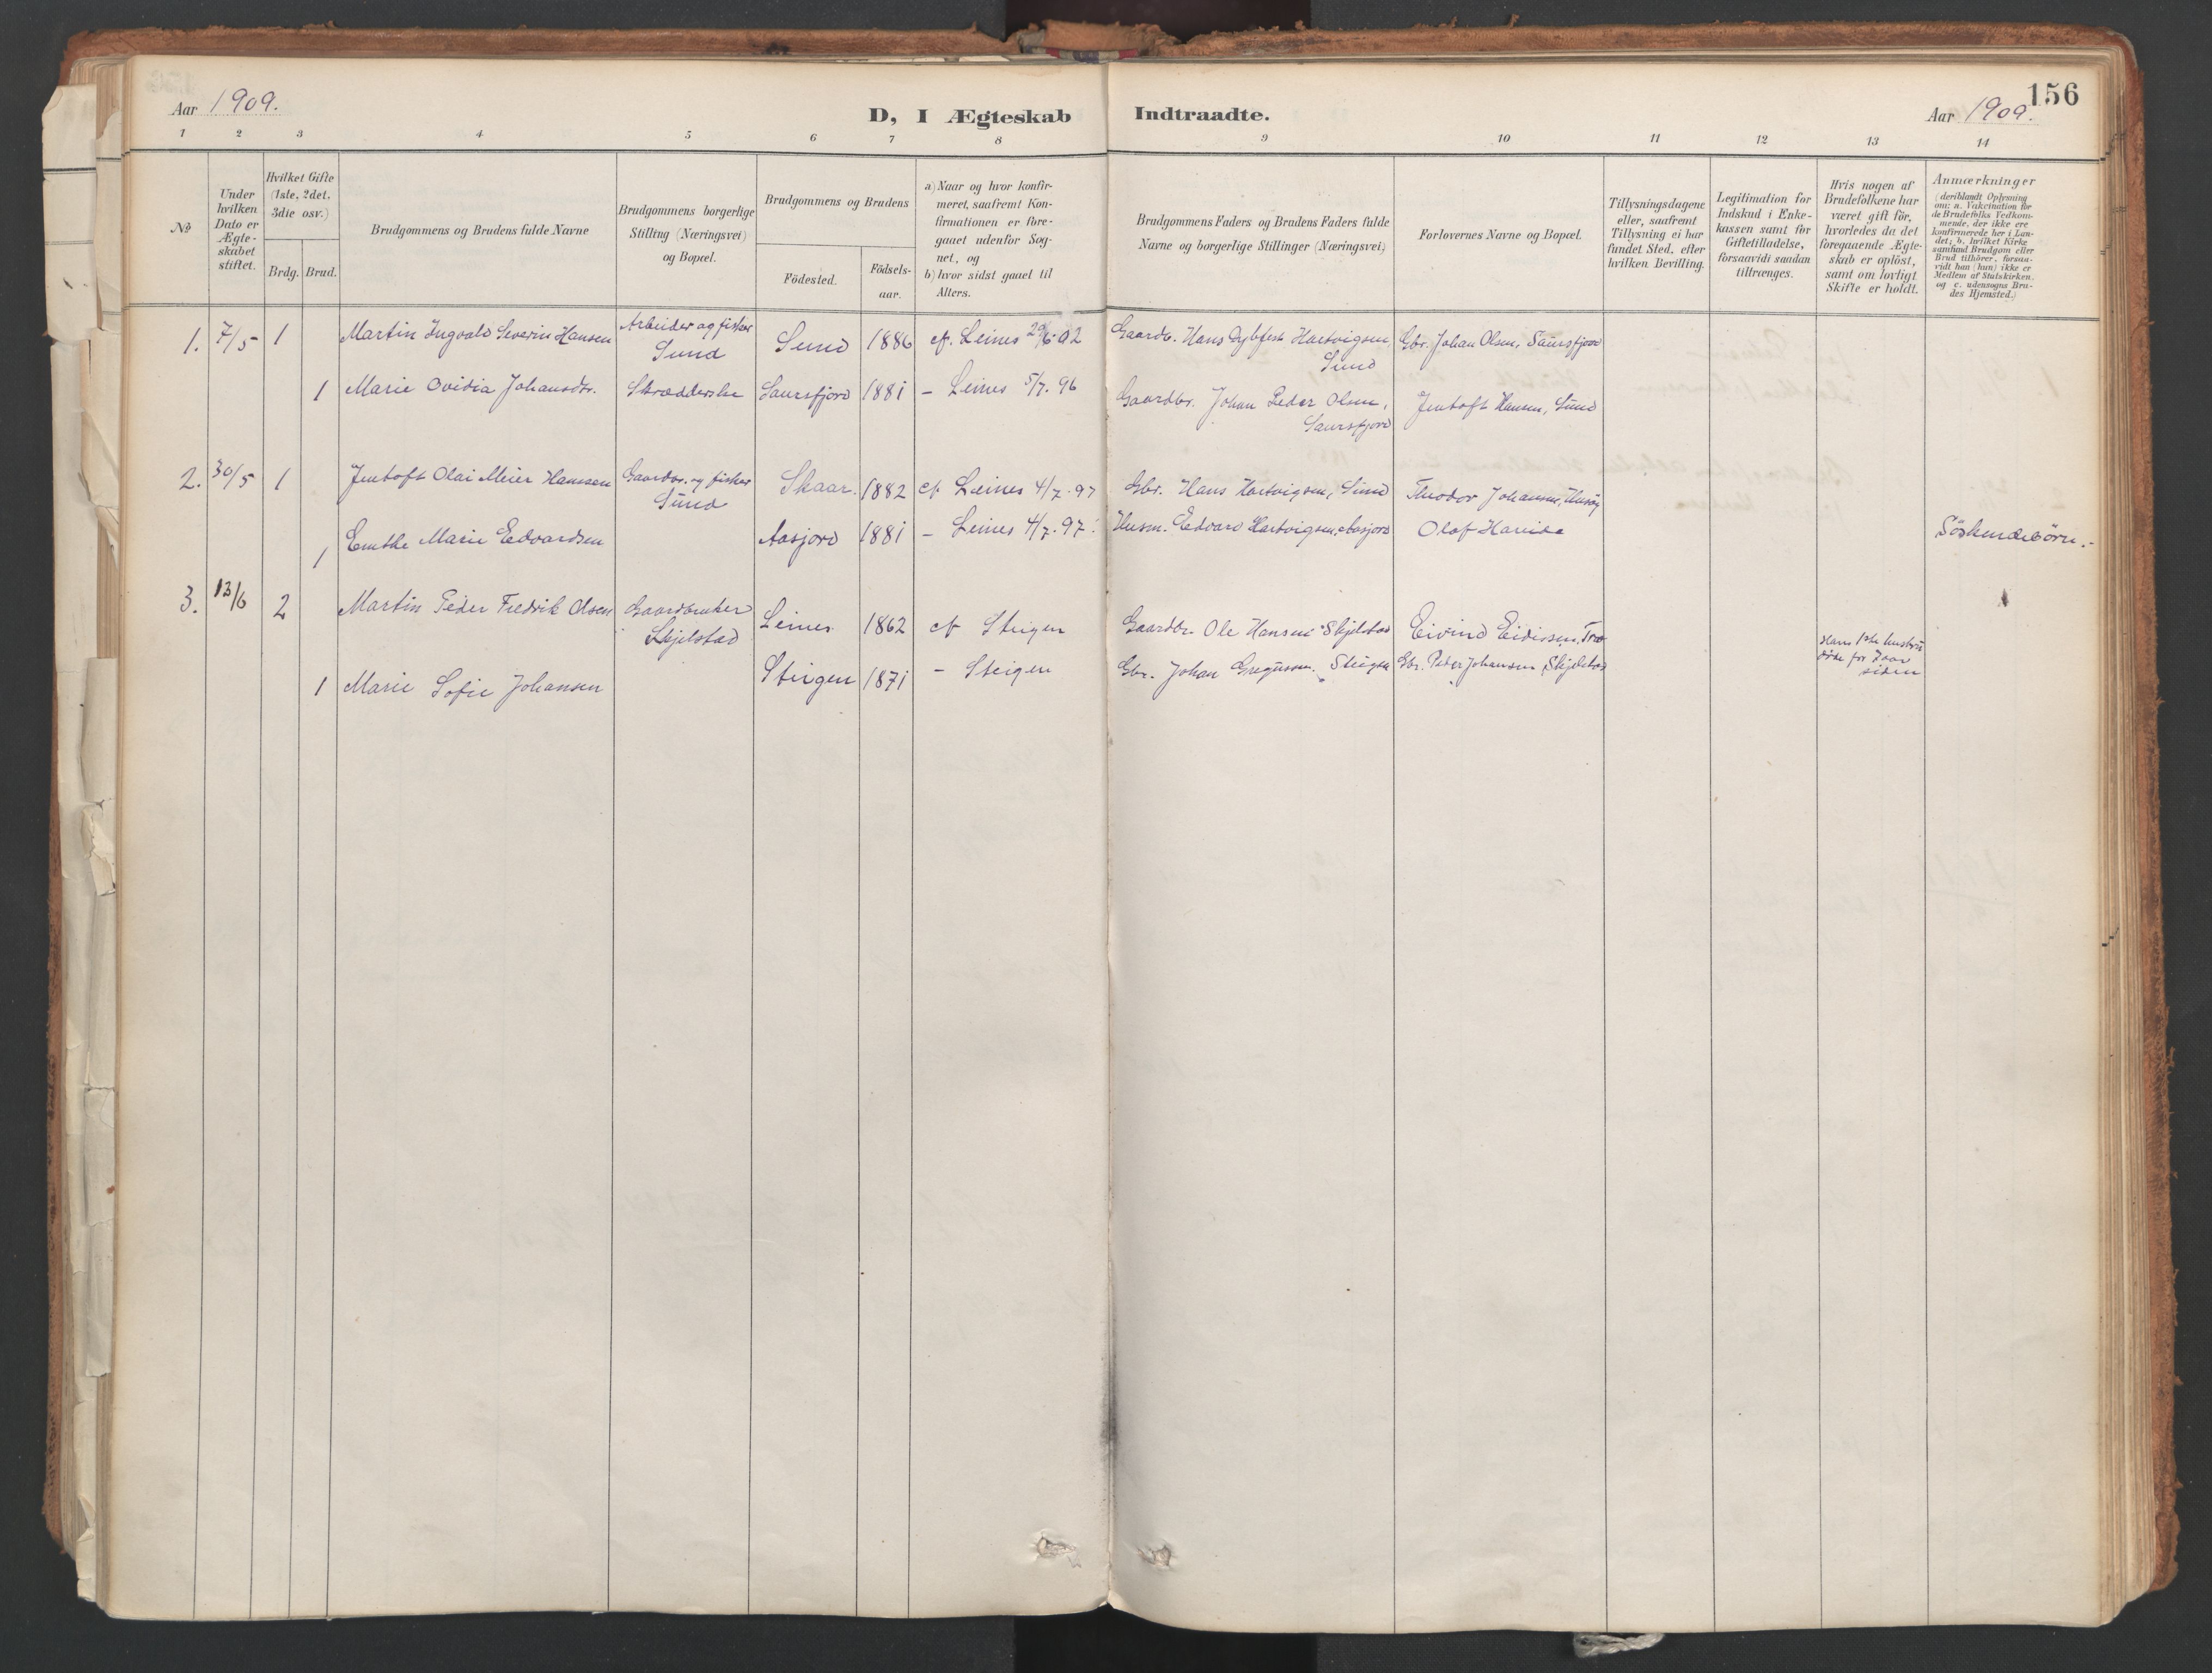 156
Aar 1909.
D, I Ægteskab Indtraadte.
Aar 1909.
1 2 3 4 5 6 7 8 9 10 11 12 13 14
№
Under
hvilken
Dato er
Ægte-
skabet
stiftet.
Hvilket Gifte
(1ste, 2det,
3die osv.)
Brdg. Brud.
Brudgommens og Brudens fulde Navne
Brudgommens borgerlige
Stilling (Næringsvei)
og Bopæl.
Brudgommens og Brudens
Födested.
Födsels-
aar.
a) Naar og hvor konfir-
meret, saafremt Kon-
firmationen er fore-
gaaet udenfor Sog-
net, og
b) hvor sidst gaaet til
Alters.
Brudgommens Faders og Brudens Faders fulde
Navne og borgerlige Stillinger (Næringsvei)
Forlovernes Navne og Bopæl.
Tillysningsdagene
eller, saafremt
Tillysning ei har
fundet Sted, efter
hvilken Bevilling.
Legitimation for
Indskud i Enke-
kassen samt for
Giftetilladelse,
forsaavidt saadan
tiltrænges.
Hvis nogen af
Brudefolkene har
været gift för,
hvorledes da det
foregaaende Ægte-
skab er oplöst,
samt om lovligt
Skifte er holdt.
Anmærkninger
(deriblandt Oplysning
om: a. Vakcination for
de Brudefolks Vedkom-
mende, der ikke ere
konfirmerede her i Lan-
det; b. hvilket Kirke
samfund Brudgom eller
Brud tilhörer, forsaa-
vidt han (hun) ikke er
Medlem af Statskirken.
og c. udensogns Bru-
des Hjemsted.)
1. 7/5 1 Martin Ingvald Severin Hansen
Arbeider og fisker
Sund
Sund 1886 cf. Leines 29/6 02
Gaardb. Hans Dybfest Hartvigsen,
Sund
Gbr. Johan Olsen, Saursfjord
1 Marie Ovidia Johansdtr. Skrædderske Saursfjord 1881 – Leines 5/7. 96
Gaardbr. Johan Peder Olsen,
Saursfjord
Jentoft Hansen, Sund
2. 30/5 1 Jentoft Olai Meier Hansen
Gaardbr. og fisker
Sund
Skaar. 1882 cf Leines 4/7. 97
Gbr. Hans Hartvigsen, Sund
Theodor Johansen, Husøy
1 Emthe Marie Edvardsen Aasjord 1881 – Leines 4/7. 97.
Husm. Edvard Hartvigsen, Aasjord
Olaf
Söskendebörn.-
3. 13/6 2 Martin Peder Fredrik Olsen
Gaardbruker
Skjelstad
Leines 1862 cf Steigen
Gaardbr. Ole Hansen Skjelstad
Eivind Eidissen,
Hans 1ste hustru
døde for 7 aar
siden
1 Marie Sofie Johansen Steigen 1871 – Steigen
Gbr. Johan Gregussen. Steigen
Gbr. Peder Johansen Skjelstad